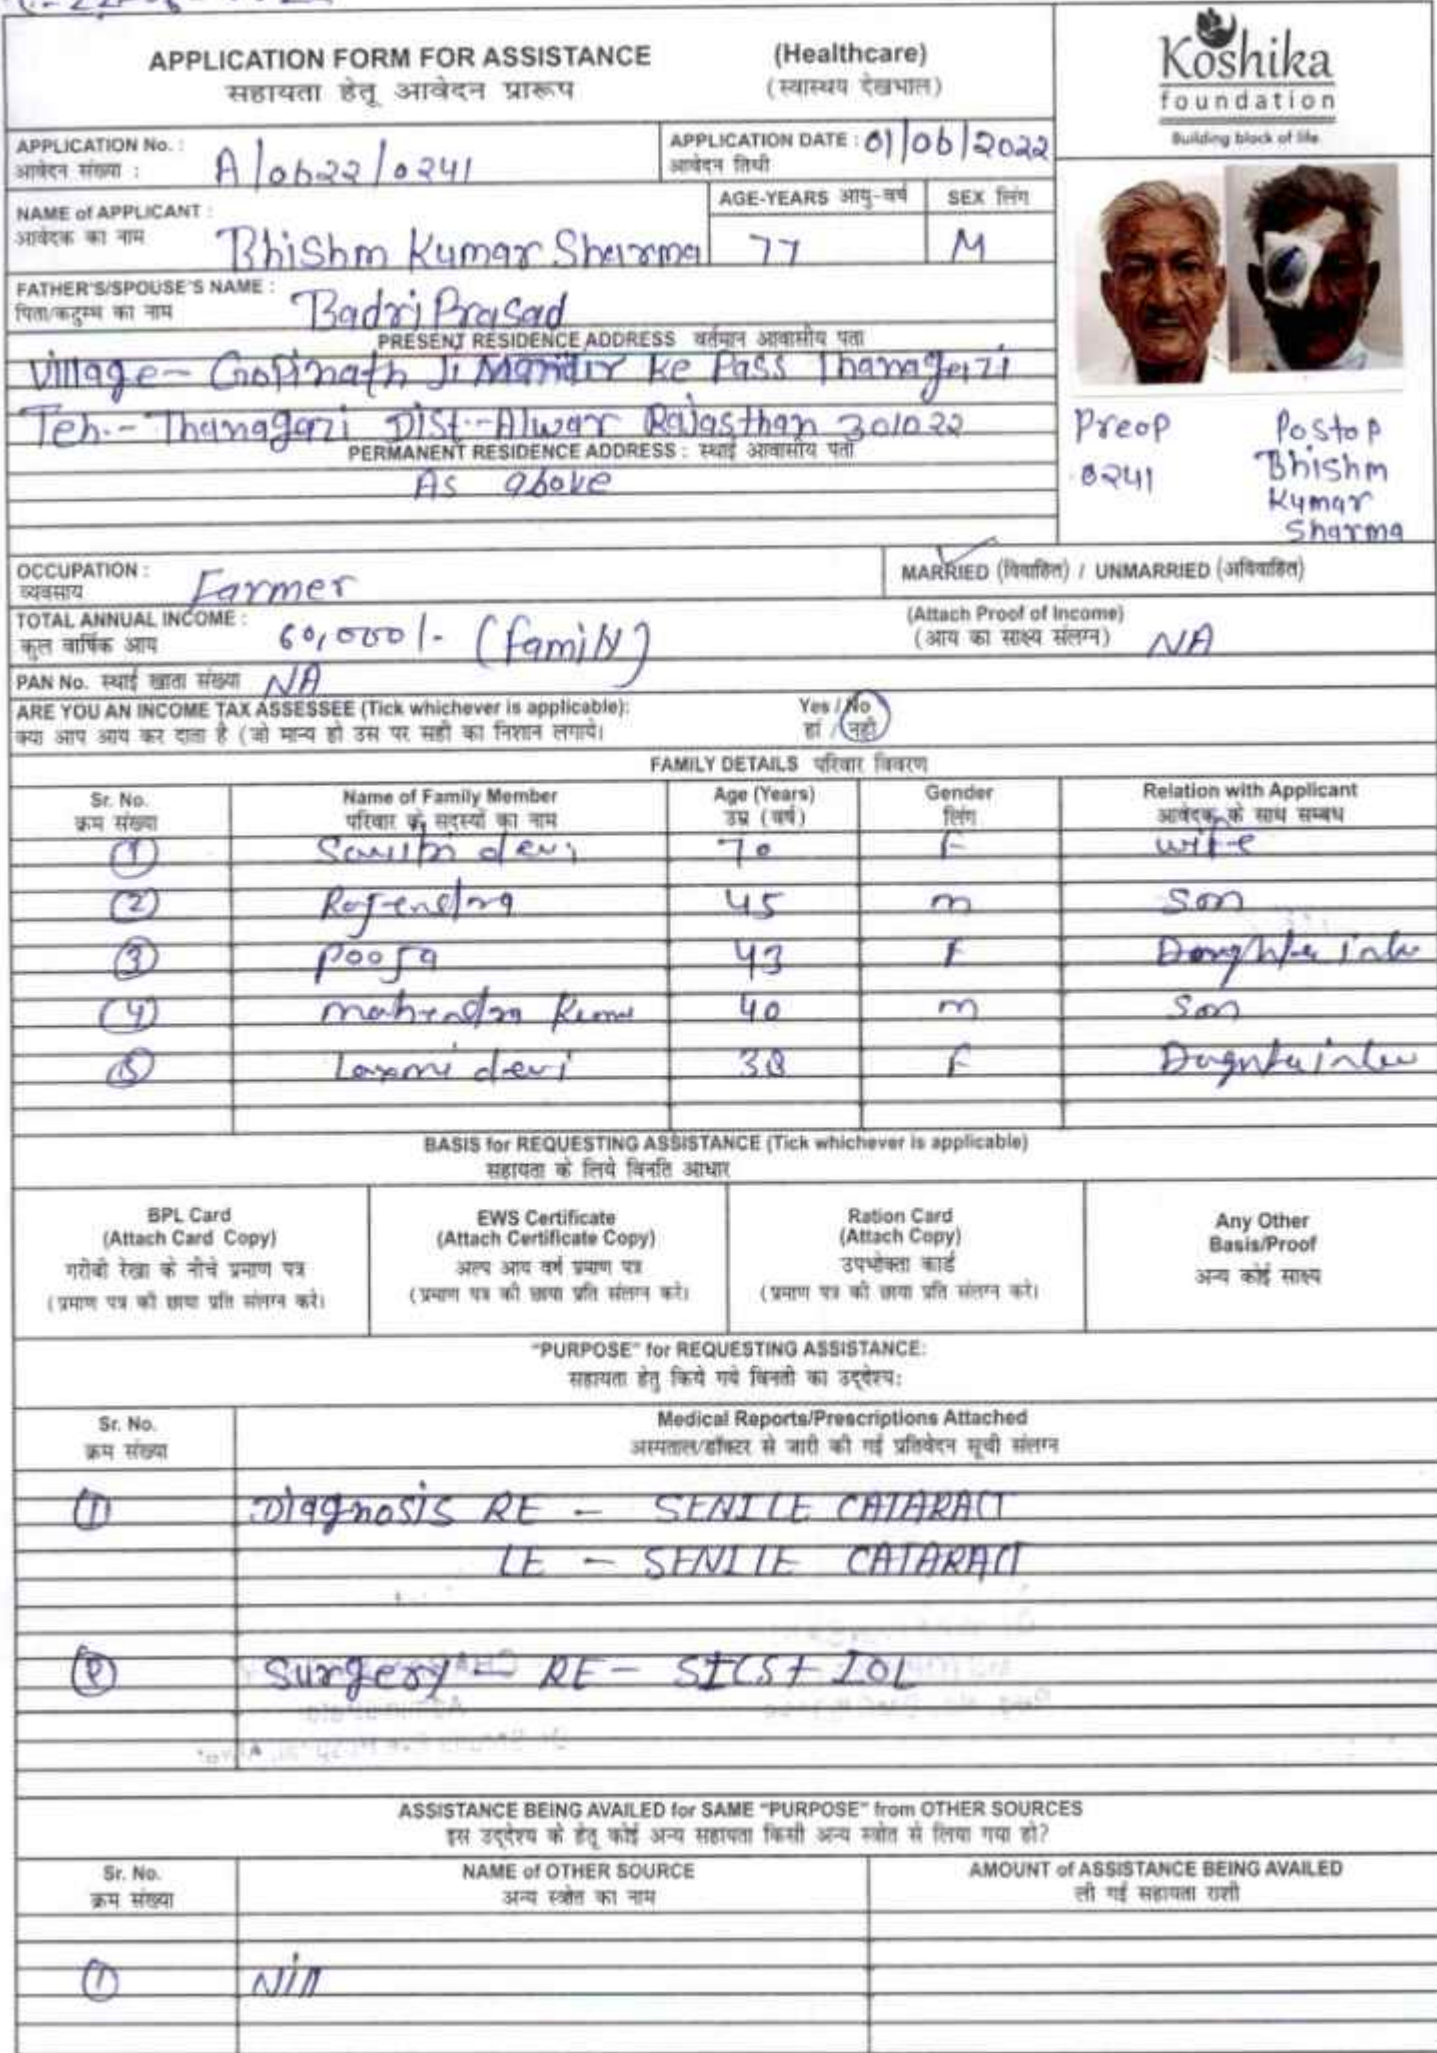 APPLICATION FORM FOR ASSISTANCE (Healthcare)
सहायता हेतू आवेदन प्रारूप (स्वास्थय देखभाल)
Koshika
foundation
Building block of life
APPLICATION No. : A/0622/0241 APPLICATION DATE : 01/06/2022
आवेदन संख्या : आवेदन तिथी
NAME of APPLICANT : Bhishm Kumar Sharma AGE-YEARS आयु-वर्ष 77 SEX लिंग M
आवेदक का नाम
FATHER'S/SPOUSE'S NAME : Badri Prasad
पिता/कटुम्ब का नाम
PRESENT RESIDENCE ADDRESS वर्तमान आवासीय पता
Village- Gopinath Ji Mandir ke Pass Thanagazi
Teh.- Thanagazi Dist.-Alwar Rajasthan 301022
PERMANENT RESIDENCE ADDRESS : स्थाई आवासीय पता
As above
Preop
0241
Postop
Bhishm
Kumar
Sharma
OCCUPATION : Farmer MARRIED (विवाहित) / UNMARRIED (अविवाहित)
व्यवसाय
TOTAL ANNUAL INCOME : 60,000/- (family) (Attach Proof of Income)
कुल वार्षिक आय (आय का साक्ष्य संलग्न) NA
PAN No. स्थाई खाता संख्या NA
ARE YOU AN INCOME TAX ASSESSEE (Tick whichever is applicable): Yes / No
क्या आप आय कर दाता है (जो मान्य हो उस पर सही का निशान लगाये। हां / नहीं
FAMILY DETAILS परिवार विवरण
Sr. No. Name of Family Member Age (Years) Gender Relation with Applicant
क्रम संख्या परिवार के सदस्यों का नाम उम्र (वर्ष) लिंग आवेदक के साथ सम्बध
(1) devi 70 F wife
(2) Rajendra 45 m Son
(3) Pooja 43 F
(4) mahendra Kumar 40 m Son
(5) Laxmi devi 38 F
BASIS for REQUESTING ASSISTANCE (Tick whichever is applicable)
सहायता के लिये विनति आधार
BPL Card
(Attach Card Copy)
गरीबी रेखा के नीचे प्रमाण पत्र
(प्रमाण पत्र की छाया प्रति संलग्न करे।
EWS Certificate
(Attach Certificate Copy)
अल्प आय वर्ग प्रमाण पत्र
(प्रमाण पत्र की छाया प्रति संलग्न करे।
Ration Card
(Attach Copy)
उपभोक्ता कार्ड
(प्रमाण पत्र की छाया प्रति संलग्न करे।
Any Other
Basis/Proof
अन्य कोई साक्ष्य
"PURPOSE" for REQUESTING ASSISTANCE:
सहायता हेतु किये गये विनती का उद्देश्य:
Sr. No. Medical Reports/Prescriptions Attached
क्रम संख्या अस्पताल/डॉक्टर से जारी की गई प्रतिवेदन सूची संलग्न
(1) Diagnosis RE - SENILE CATARACT
LE - SENILE CATARACT
(2) Surgery - RE - SICS + IOL
ASSISTANCE BEING AVAILED for SAME "PURPOSE" from OTHER SOURCES
इस उद्देश्य के हेतू कोई अन्य सहायता किसी अन्य स्त्रोत से लिया गया हो?
Sr. No. NAME of OTHER SOURCE AMOUNT of ASSISTANCE BEING AVAILED
क्रम संख्या अन्य स्त्रोत का नाम ली गई सहायता राशी
(1) Nill